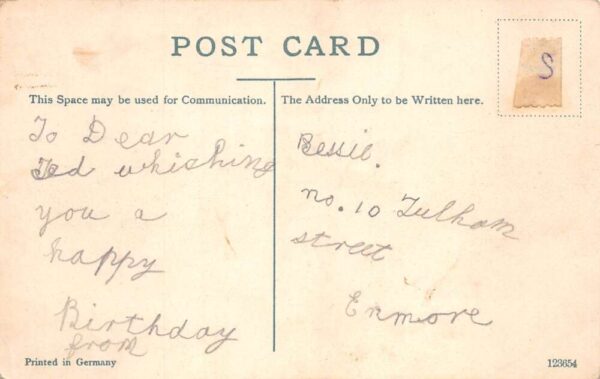 POST CARD
S
This Space may be used for Communication.
The Address Only to be Written here.
To Dear
Ted whishing
you a
happy
Birthday
from
Bessie.
no. 10 Fulham
street
Enmore
Printed in Germany
123654